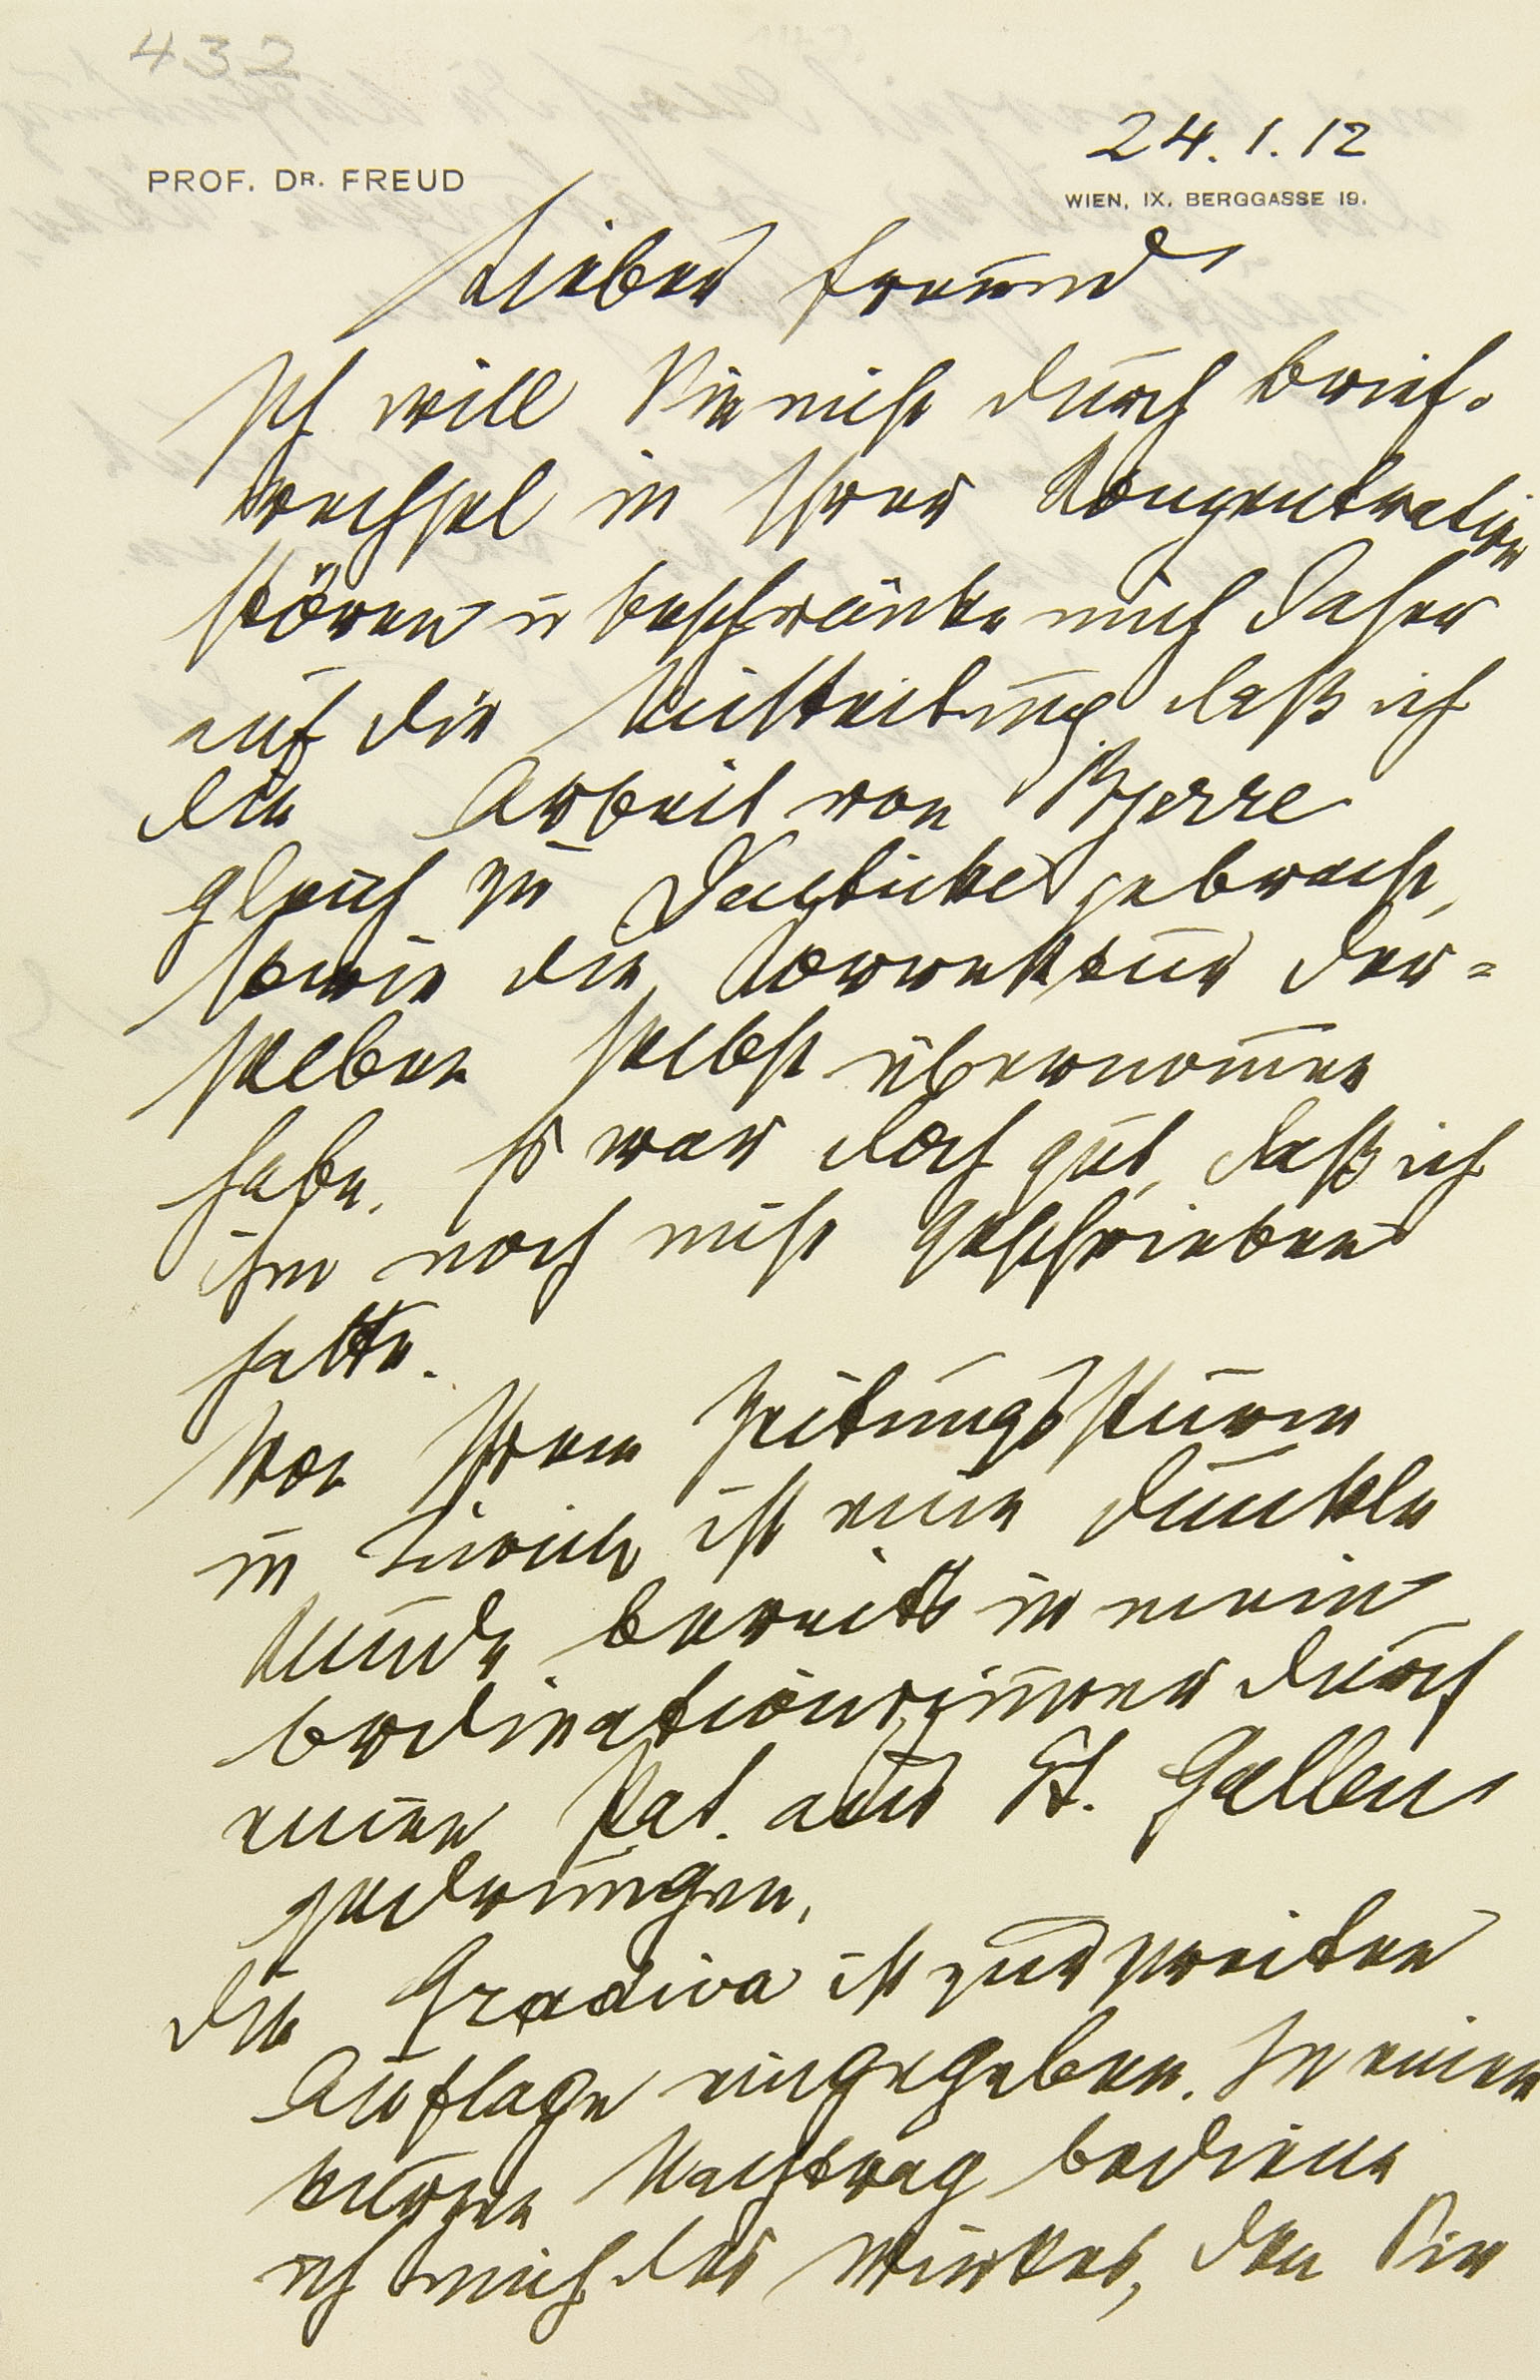 432
24.1.12
PROF. DR. FREUD
WIEN, IX. BERGGASSE 19.
Lieber Freund
Ich will Sie nicht durch Brief-
wechsel in Ihrer Konzentration
stören u beschränke mich daher
auf die Mitteilung, daß ich
die Arbeit von Bjerre
gleich zu Deuticke gebracht,
sowie die Korrektur der=
selben selbst übernom̅en
habe. Es war doch gut, daß ich
ihm noch nicht geschrieben
hatte.
Von Ihrem Zeitungssturm
in Zürich ist eine dunkle
Kunde bereits in mein
Ordinationszim̅er durch
einen Pat. aus St. Gallen
gedrungen.
Die Gradiva ist zur zweiten
Auflage eingegeben. In einem
kurzen Nachtrag bediene
ich mich des Winkes, den Sie